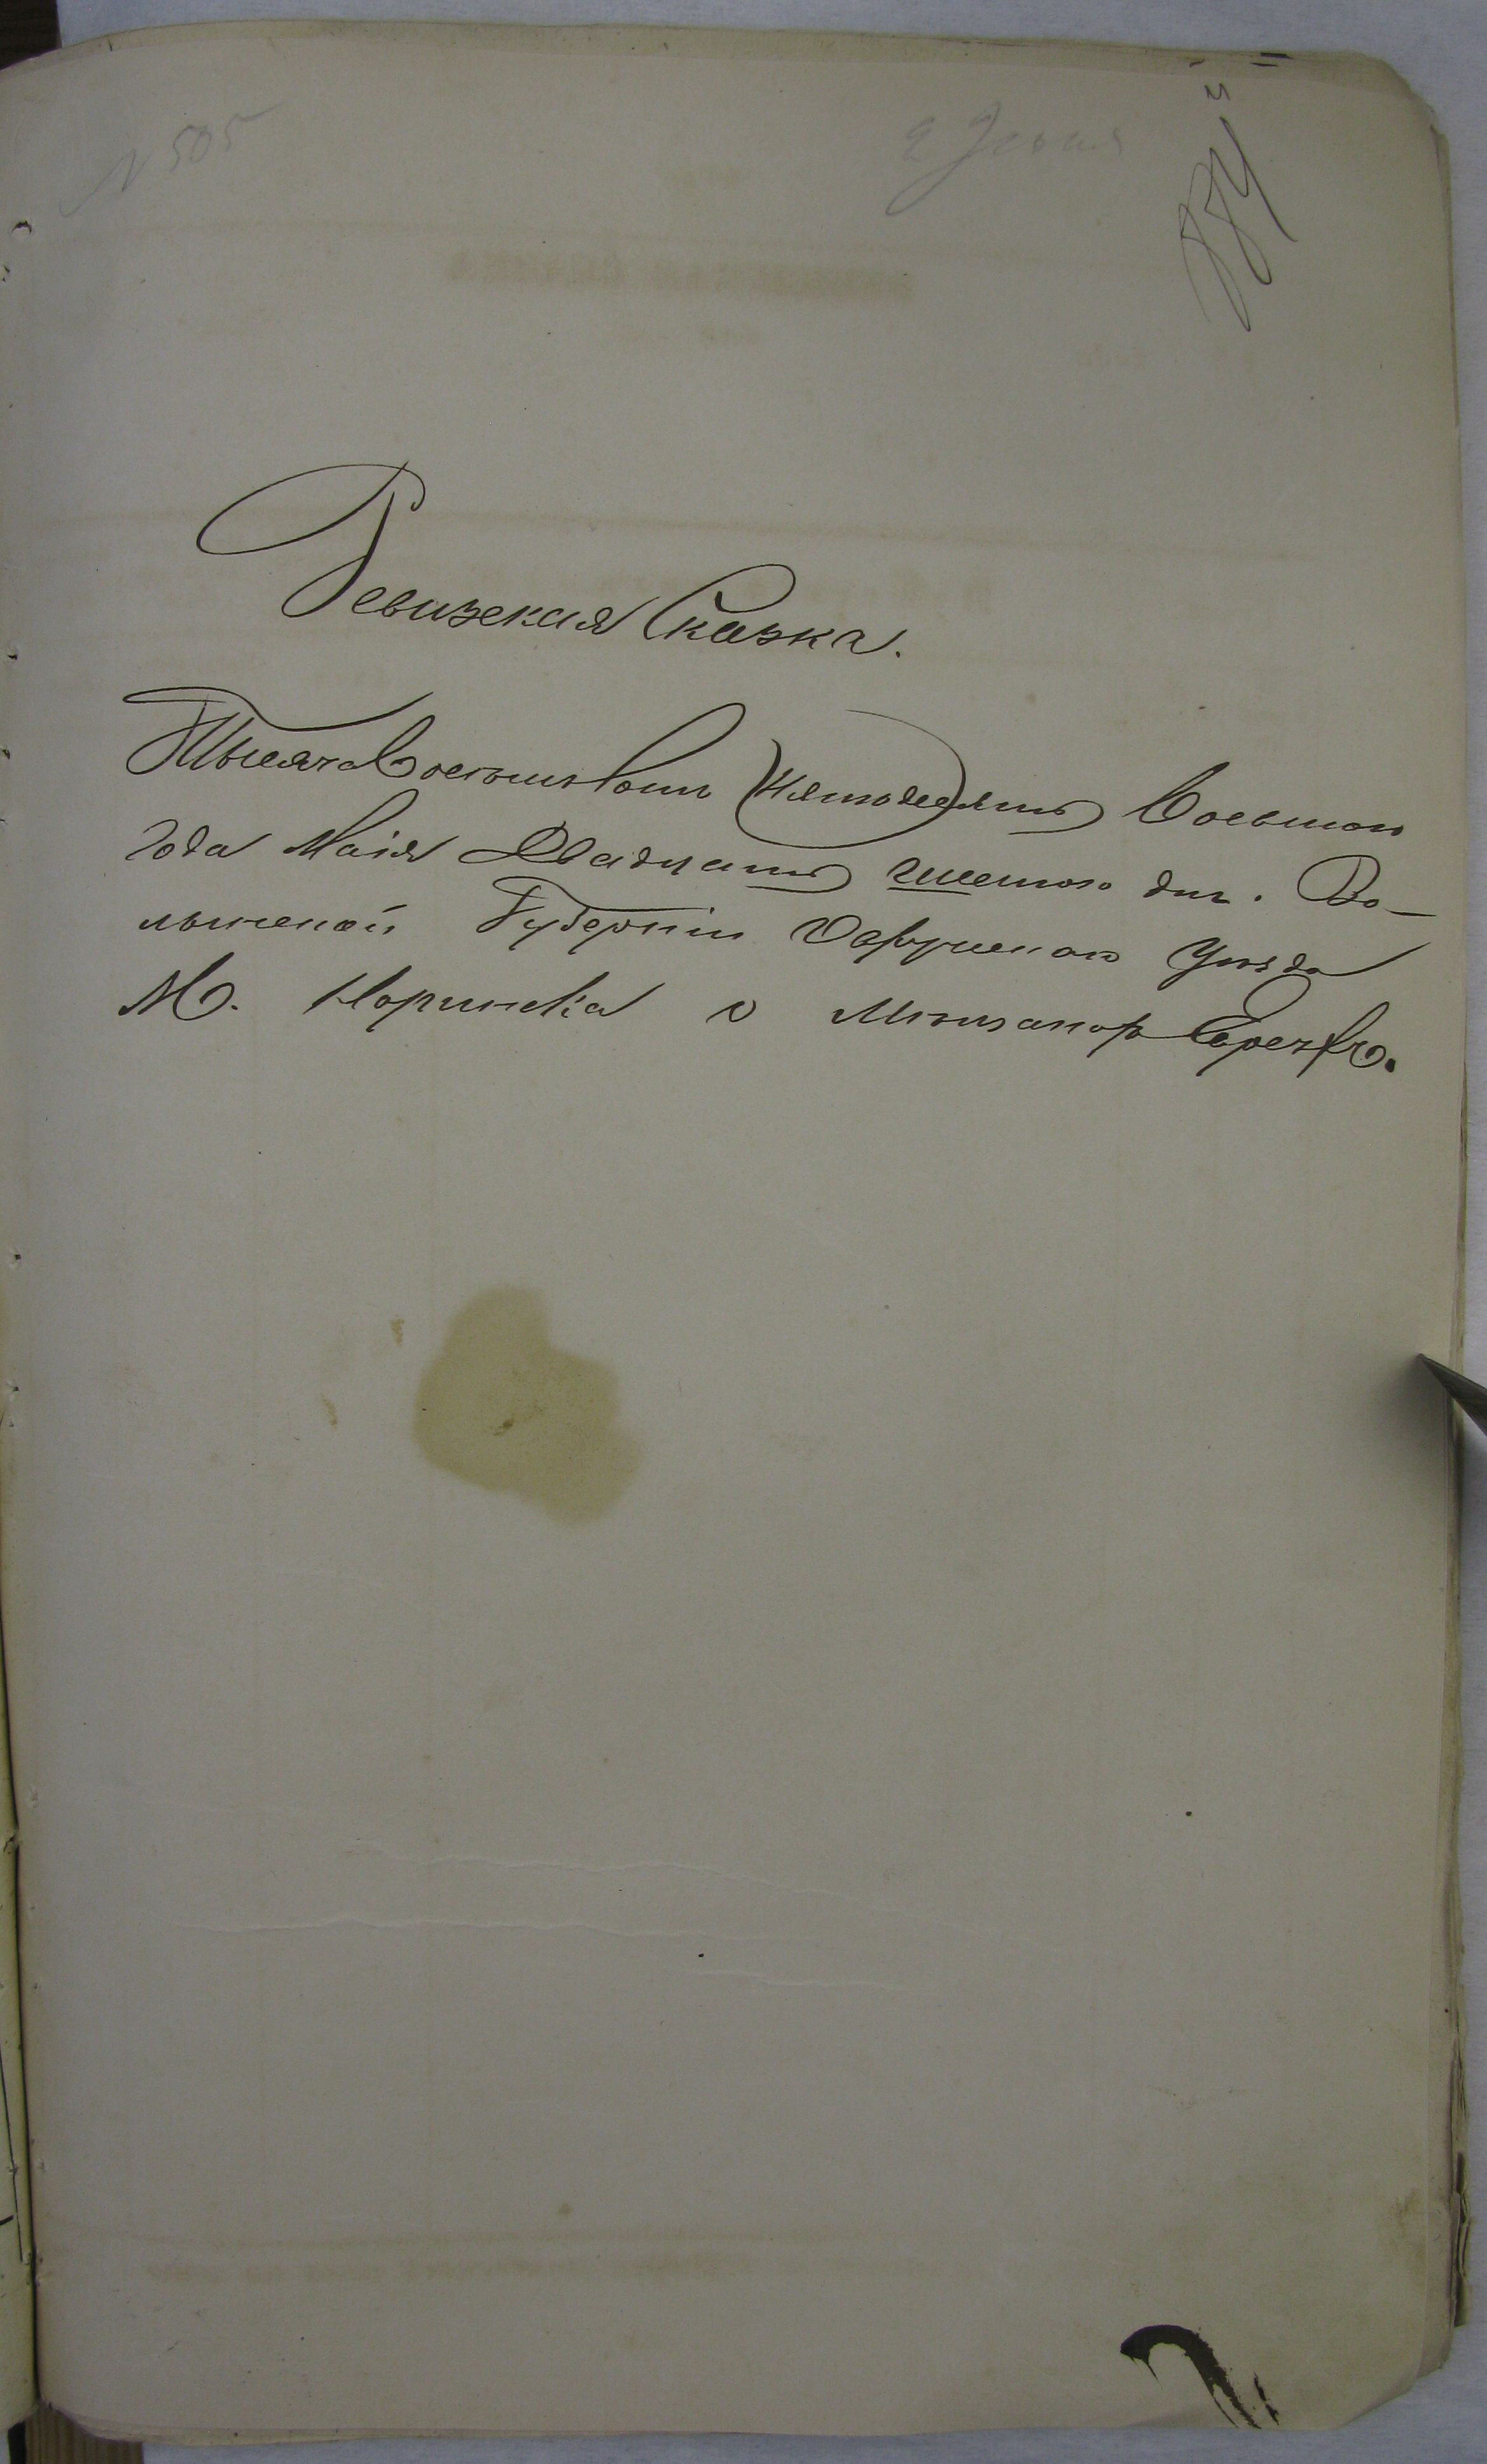 N 505
2 Іюня
Ревизская Сказка.
Тысяча Восемьсотъ Пятьдесятъ Восьмого
года Маія Двадцать шестого дня. Во-
лынской Губерніи Овручскаго Уѣзда
М. Норинска о Мѣщанахъ Евреяхъ.